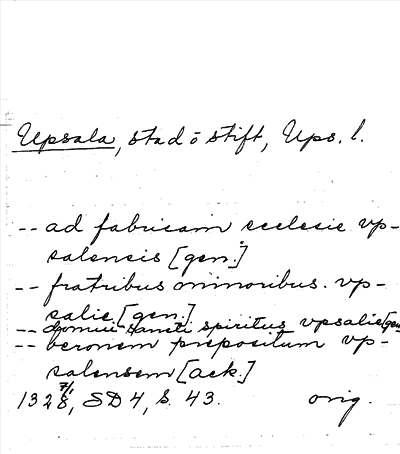 Upsala, stad o stift, Ups. l.
-- ad fabricam ecclesie vp-
salensis [gen.]
-- fratribus minoribus. vp-
salie. [gen.]
-- domui sancti spiritus vpsalie [gen.]
-- beronem prepositum vp-
salensem [ack.]
1328 7/1, SD 4, s. 43. orig.